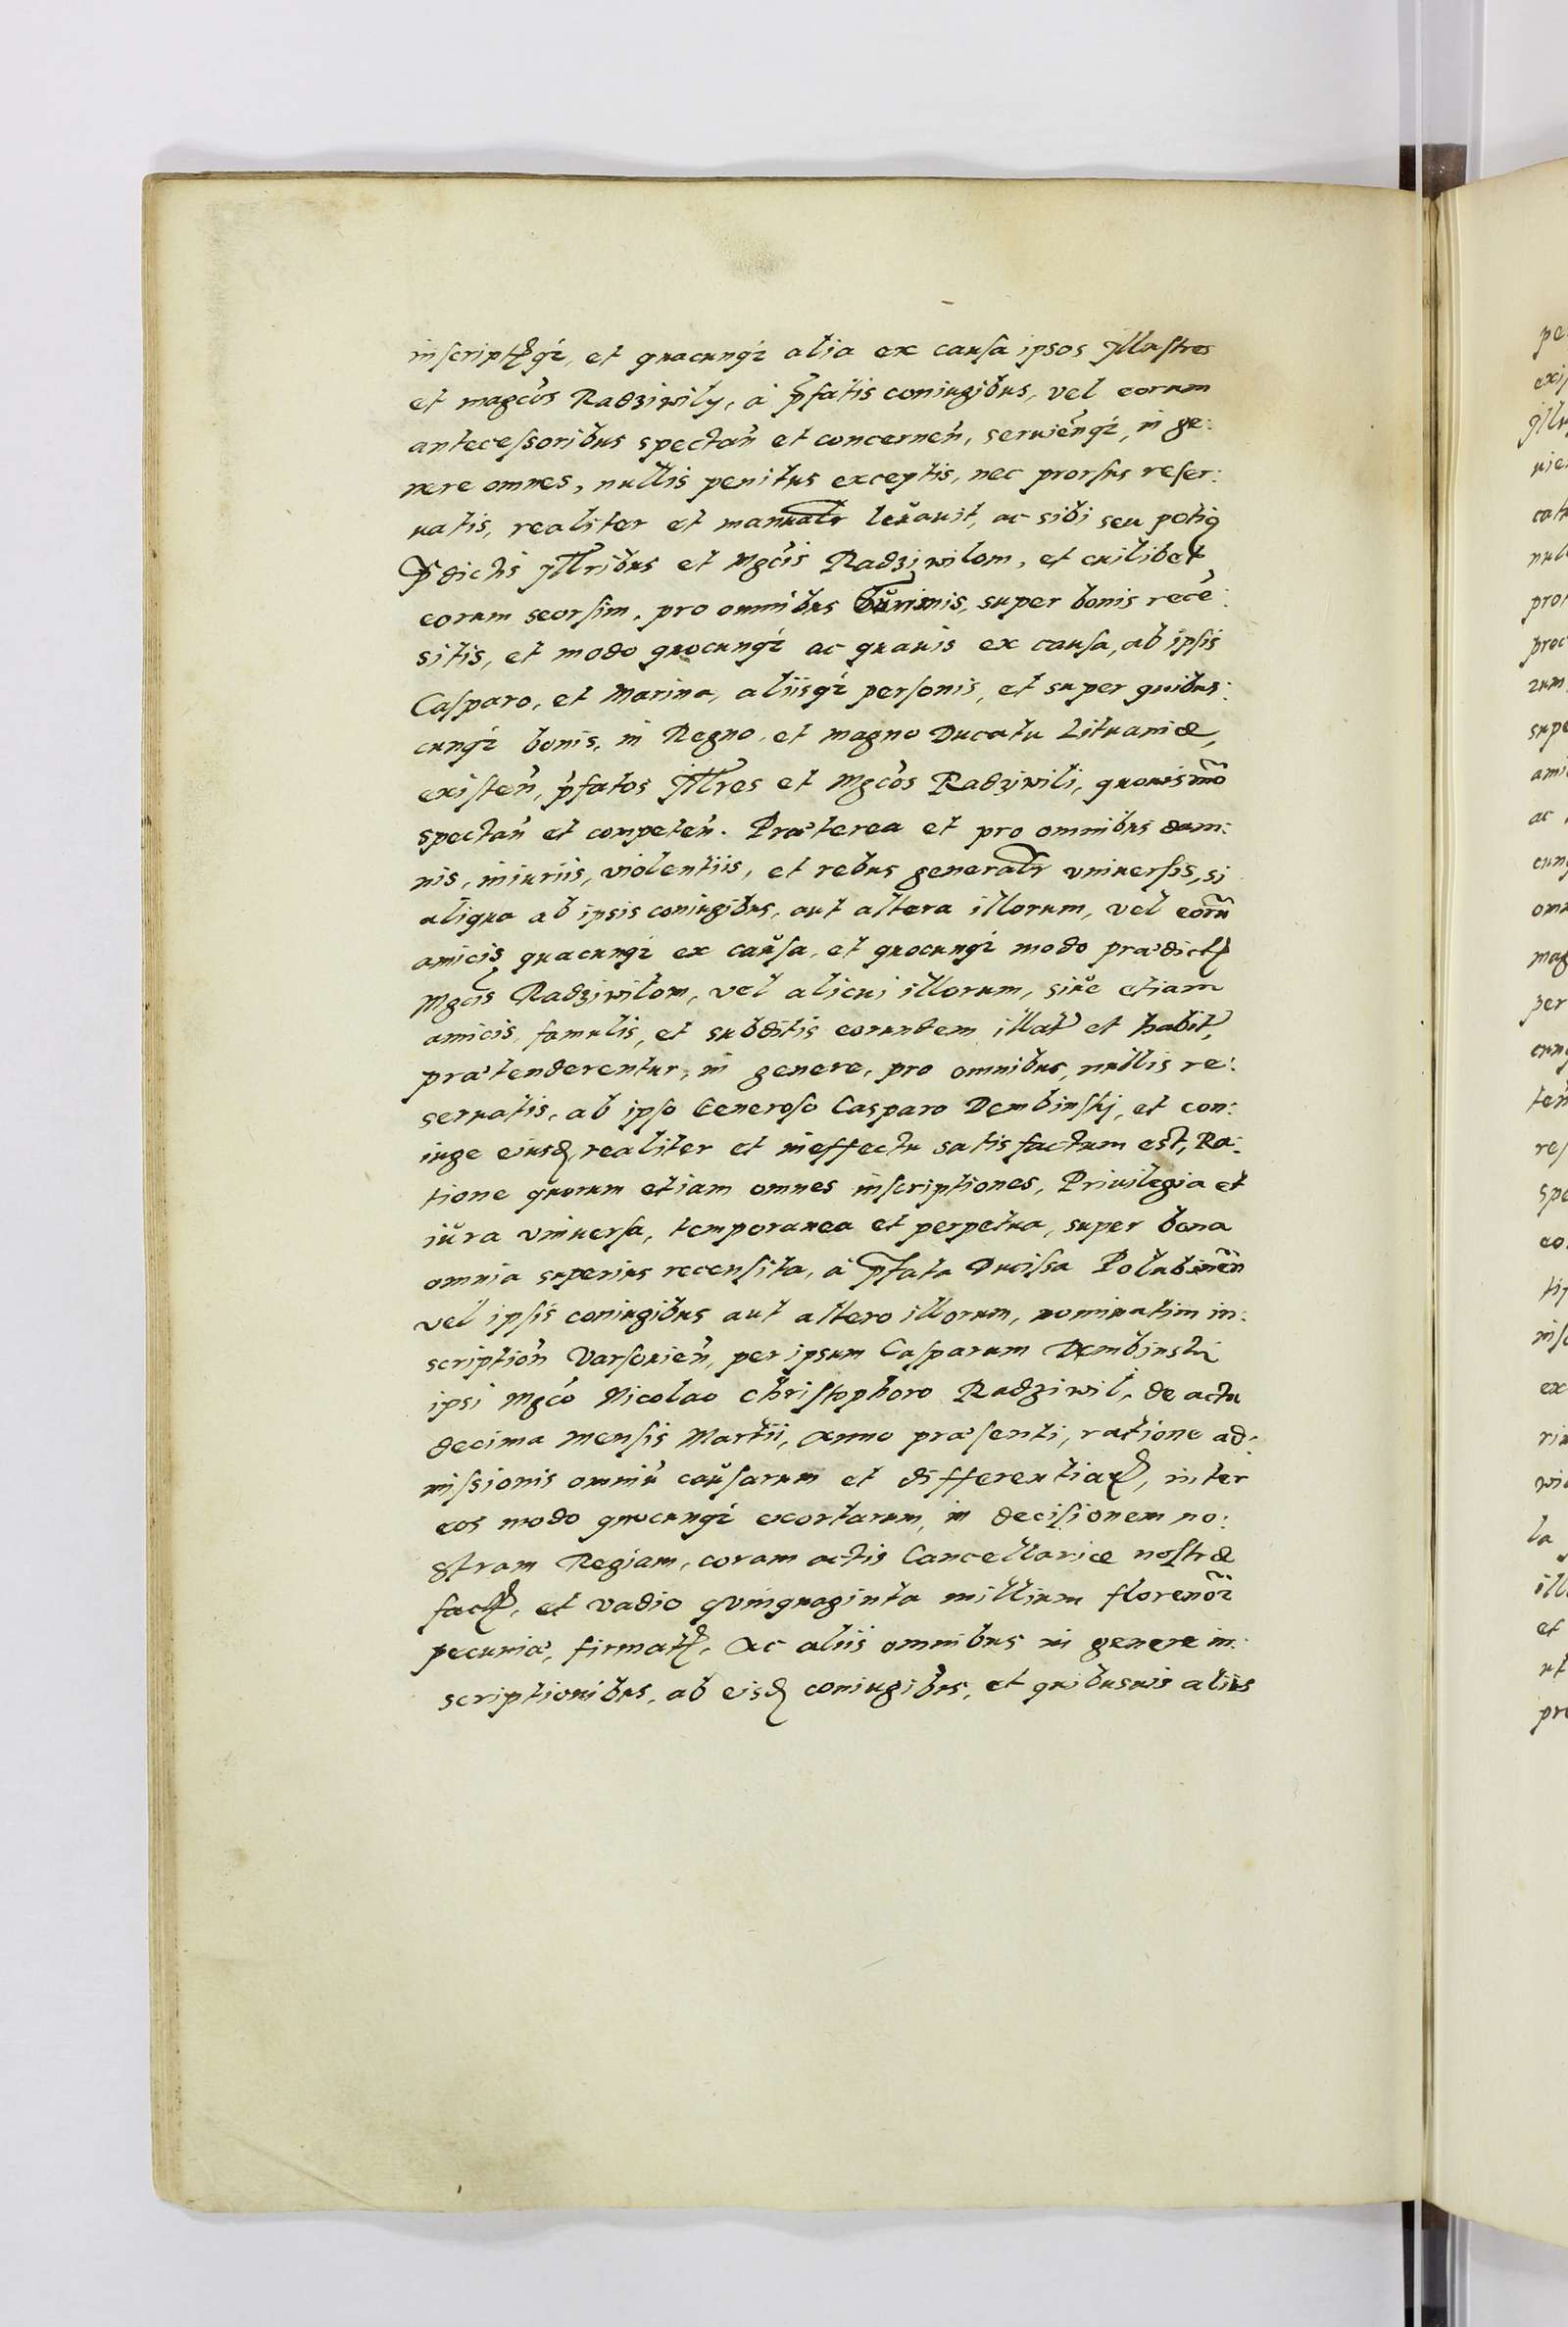 inscriptꝭqꝫ, et quacunqꝫ alia ex causa ipsos yllustres
et magcos Radziwily, a p̃fatis coniugibus, vel eorum
antecessoribus spectan̄ et concernen̄, seruien̄qꝫ, in ge:
nere omnes, nullis penitus exceptis, nec prorsus reser:
uatis, realiter et manualr leuauit, ac sibi seu potiꝯ
P̃dictis yllribus et Mgcis Radziwilom, et cuilibet
eorum seorsim, pro omnibus, super bonis recē:
sitis, et modo quocunqꝫ ac quauis ex causa, ab ipsis
Casparo, et Marina, aliisqꝫ personis, et super quibus:
cunqꝫ bonis, in Regno, et magno Ducatu Lituaniæ,
existen̄, p̃fatos Yllres et Mgcos Radziwili, quouismo
spectan̄ et competen̄. Præterea et pro omnibus dam:
nis, iniuriis, violentiis, et rebus generalr vniuersis, si
aliqua ab ipsis coniugibus, aut altera illorum, vel eorū
amicis quacunqꝫ ex causa, et quocunqꝫ modo prædictꝭ
Mgcis Radziwilom, vel alicui illorum, siue etiam
amicis, famulis, et subditis eorundem illat̃ et habit̃,
prætenderentur, in genere, pro omnibus, nullis re:
seruatis, ab ipso Generoso Casparo Dembinskj, et con:
iuge eiusdꝫ realiter et in effectu satisfactum est, Ra:
tione quorum etiam omnes inscriptiones, Priuilegia et
iura vniuersa, temporanea et perpetua, super bona
omnia superius recensita, a p̃fata Ducissa Polubinen̄
vel ipsis coniugibus aut altero illorum, nominatim in:
scription̄ Varsouien̄, per ipsum Casparum Dembinski
ipsi Mgco Nicolao Christophoro Radziwil, de actu
decima Mensis Martii, Anno præsenti, ratione ad:
missionis omniū causarum et differentiaꝝ, inter
eos modo quocunqꝫ exortarum, in decisionem no:
stram Regiam, coram actis Cancellariæ nostræ
factꝭ, et vadio quinquaginta millium florenoꝝ
pecuniæ, firmatꝭ, Ac aliis omnibus in genere in:
scriptionibus, ab eisdꝫ coniugibus, et quibusuis aliis